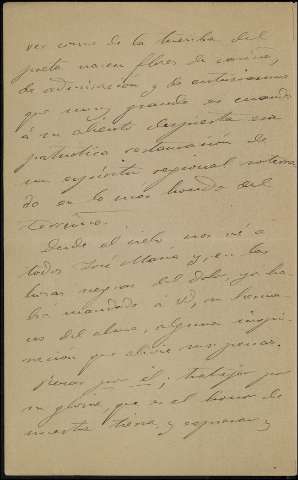 ver como de la tumba del
poeta nacen flores de cariño,
de admiración y de entusiasmo
que muy grande es cuando
á su aliento despierta una
patriotica restauración de
un espíritu regional soterra
do en lo mas hondo del
terruño.
Desde el cielo nos vé á
todos José Maria y, en las
horas negras del dolor, ya ha
brá mandado á Vd, su herma
no del alma, alguna inspi
ración que alivie sus penas.
Rezar por él, trabajar por
su gloria, que es el honor de
nuestra tierra, y esperar, y